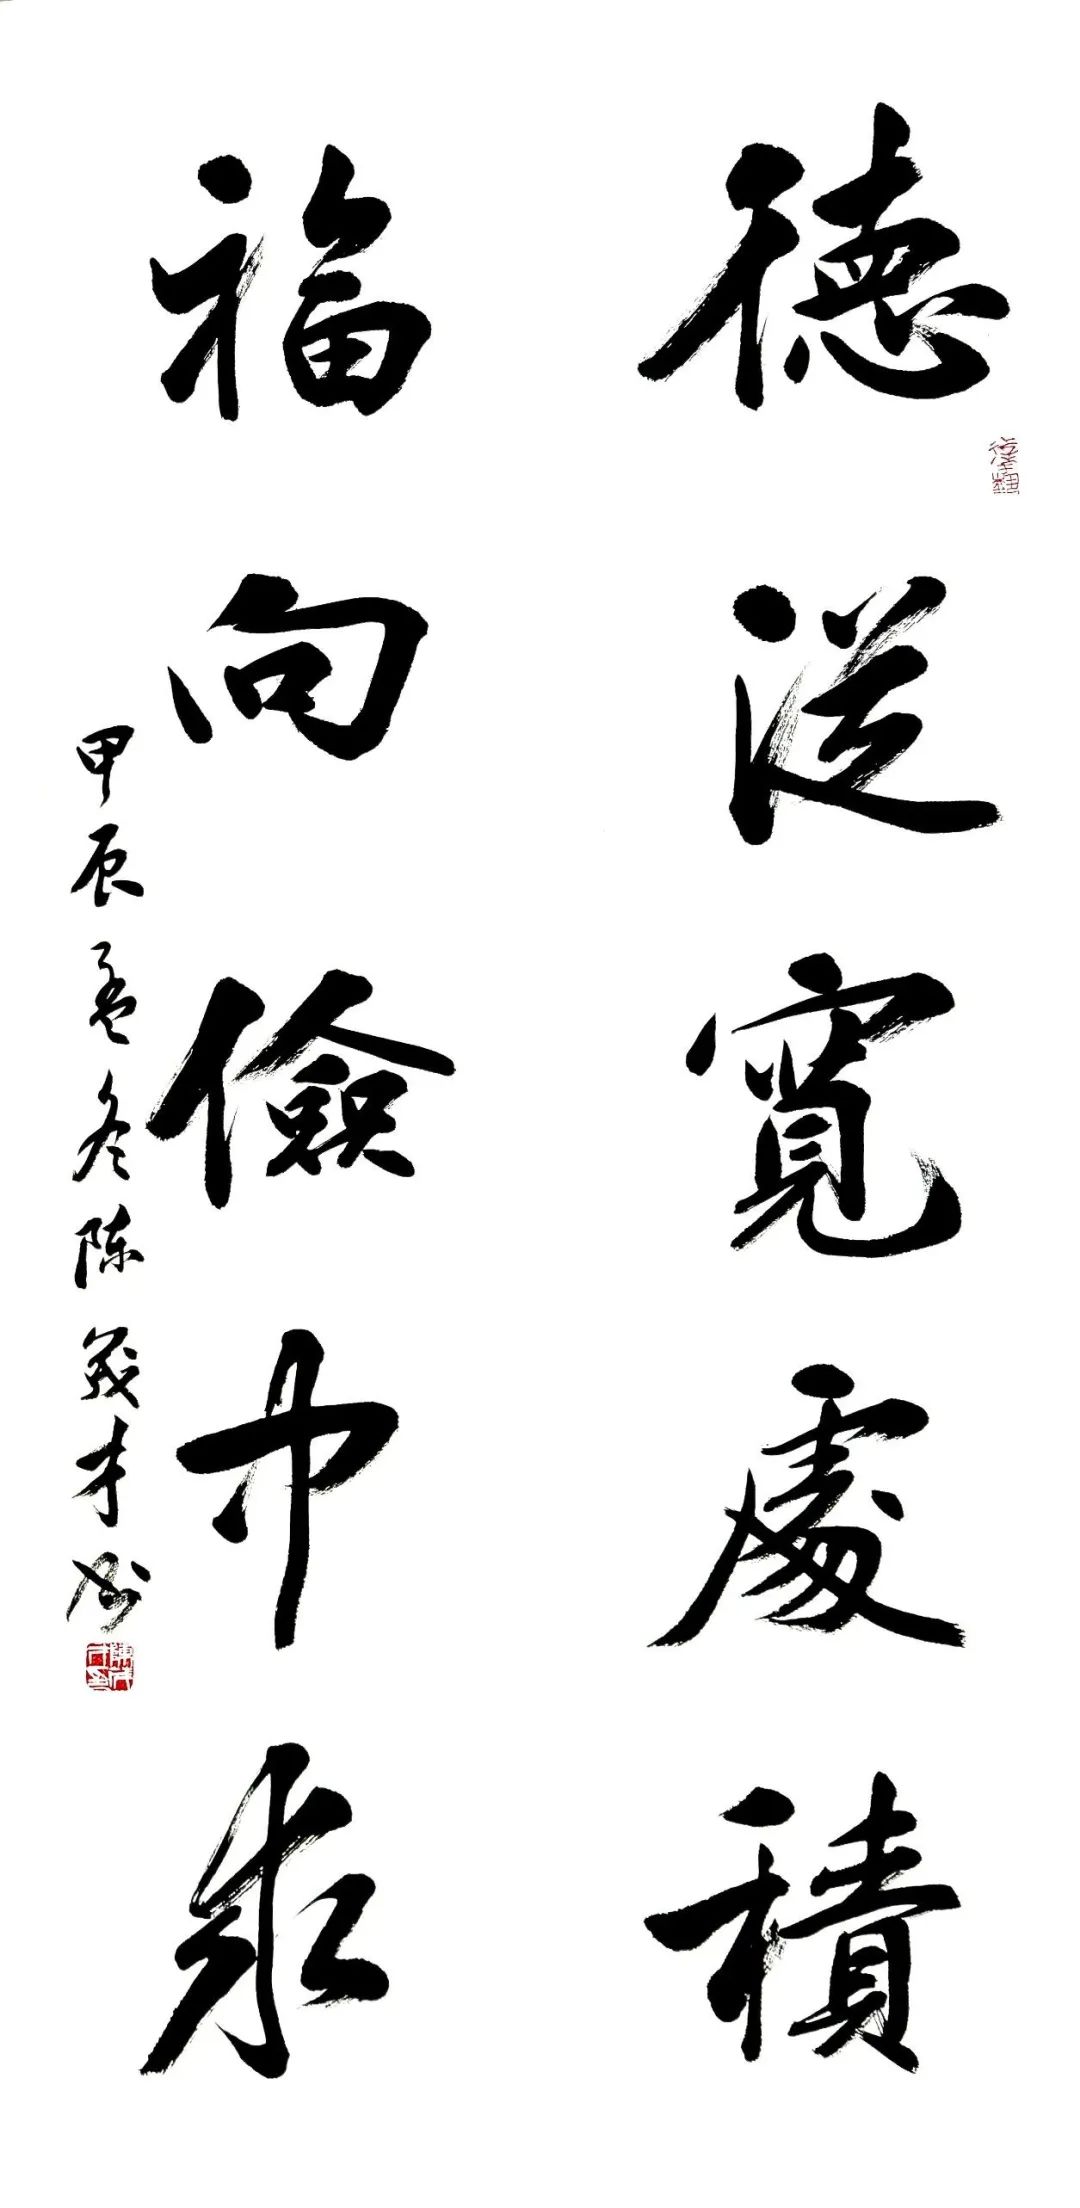 德從寬處積
福向儉中求
甲辰孟冬陈茂才书